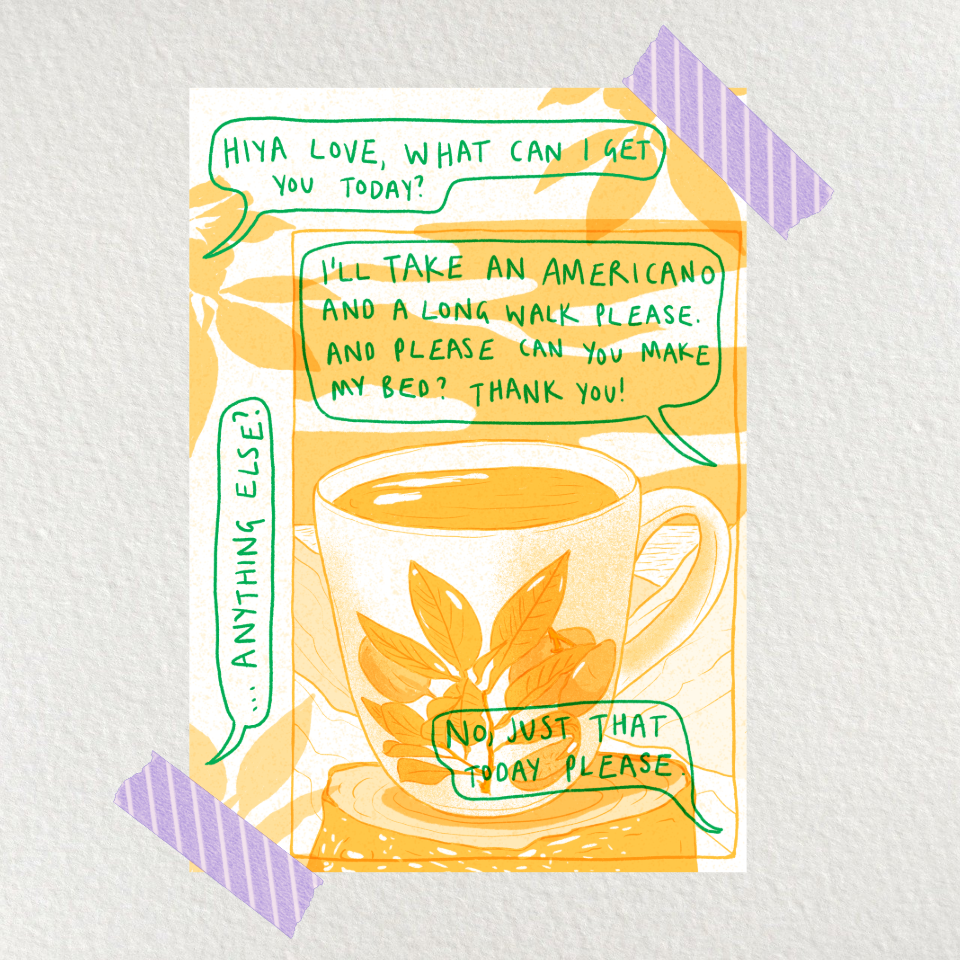 HIYA LOVE, WHAT CAN I GET
YOU TODAY?
I'LL TAKE AN AMERICANO
AND A LONG WALK PLEASE.
AND PLEASE CAN YOU MAKE
MY BED? THANK YOU!
... ANYTHING ELSE?
NO, JUST THAT
TODAY PLEASE.